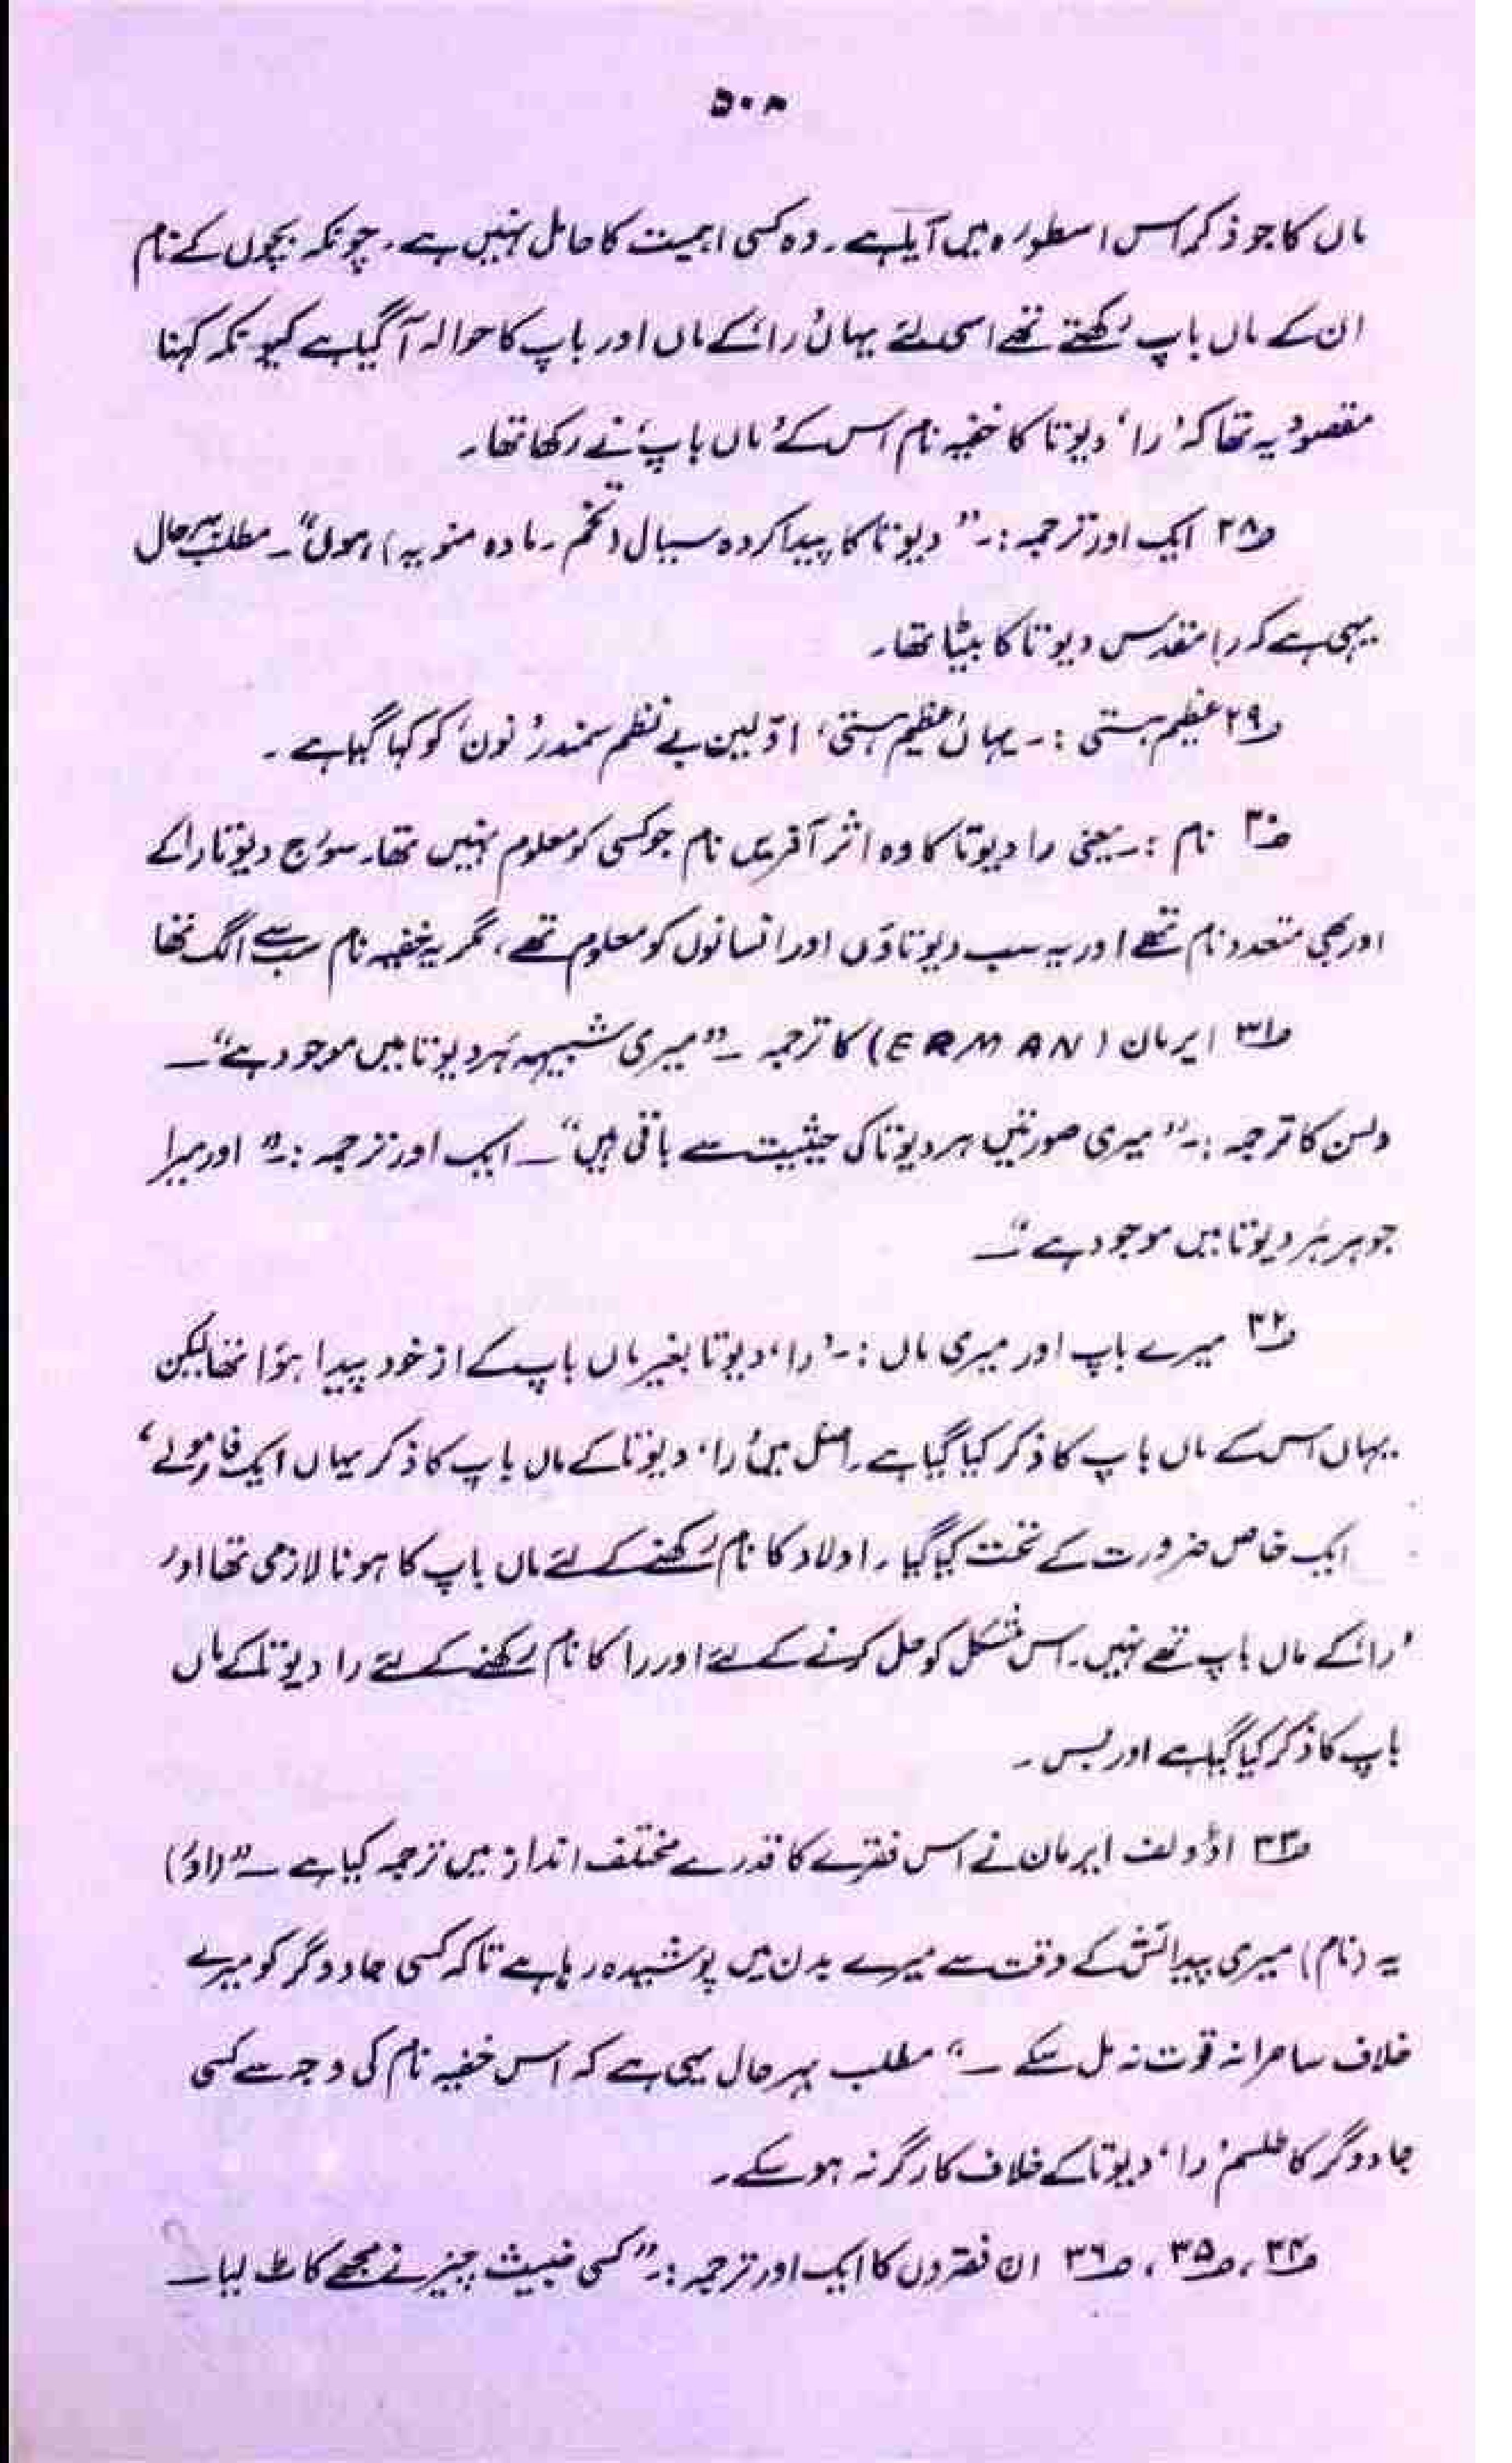 ۵۰۸
ماں کا جو ذکر اس اسطورہ میں آیا ہے۔ وہ کسی اہمیت کا حامل نہیں ہے۔ چونکہ بچوں کے نام
ان کے ماں باپ رکھتے تھے اسی لئے یہاں 'را' کے ماں اور باپ کا حوالہ آ گیا ہے کیونکہ کہنا
مقصود یہ تھا کہ 'را' دیوتا کا خفیہ نام اس کے 'ماں باپ' نے رکھا تھا۔
ف۲۸ ایک اور ترجمہ :۔ ” دیوتا کا پیدا کردہ سیال (تخم ۔ مادہ منویہ) ہوں“۔ مطلب بہرحال
یہی ہے کہ را مقدس دیوتا کا بیٹا تھا۔
ف۲۹ عظیم ہستی :۔ یہاں 'عظیم ہستی' اوّلین بے نظم سمندر 'نون' کو کہا گیا ہے۔
ف۳۰ نام :۔ یعنی را دیوتا کا وہ اثر آفریں نام جو کسی کو معلوم نہیں تھا۔ سورج دیوتا را کے
اور بھی متعدد نام تھے اور یہ سب دیوتاؤں اور انسانوں کو معلوم تھے، مگر یہ خفیہ نام سب سے الگ تھا
ف۳۱ ایرمان (ERMAN) کا ترجمہ ۔” میری شبیہہ ہر دیوتا میں موجود ہے“۔
ولسن کا ترجمہ :۔” میری صورتیں ہر دیوتا کی حیثیت سے باقی ہیں“۔ ایک اور ترجمہ :۔” اور میرا
جوہر ہر دیوتا میں موجود ہے“۔
ف۳۲ میرے باپ اور میری ماں :۔ 'را' دیوتا بغیر ماں باپ کے از خود پیدا ہوا تھا لیکن
یہاں اس کے ماں باپ کا ذکر کیا گیا ہے۔ اصل میں 'را' دیوتا کے ماں باپ کا ذکر یہاں ایک فارمولے،
ایک خاص ضرورت کے تحت کیا گیا۔ اولاد کا نام رکھنے کے لئے ماں باپ کا ہونا لازمی تھا اور
'را' کے ماں باپ تھے نہیں۔ اس مشکل کو حل کرنے کے لئے اور را کا نام رکھنے کے لئے را دیوتا کے ماں
باپ کا ذکر کیا گیا ہے اور بس۔
ف۳۳ اڈولف ایرمان نے اس فقرے کا قدرے مختلف انداز میں ترجمہ کیا ہے ۔” (اور)
یہ (نام) میری پیدائش کے وقت سے میرے بدن میں پوشیدہ رہا ہے تاکہ کسی جادوگر کو میرے
خلاف ساحرانہ قوت نہ مل سکے ۔“ مطلب بہرحال یہی ہے کہ اس خفیہ نام کی وجہ سے کسی
جادوگر کا طلسم 'را' دیوتا کے خلاف کارگر نہ ہو سکے۔
ف۳۴، ف۳۵، ف۳۶ ان فقروں کا ایک اور ترجمہ :۔” کسی خبیث چیز نے مجھے کاٹ لیا۔